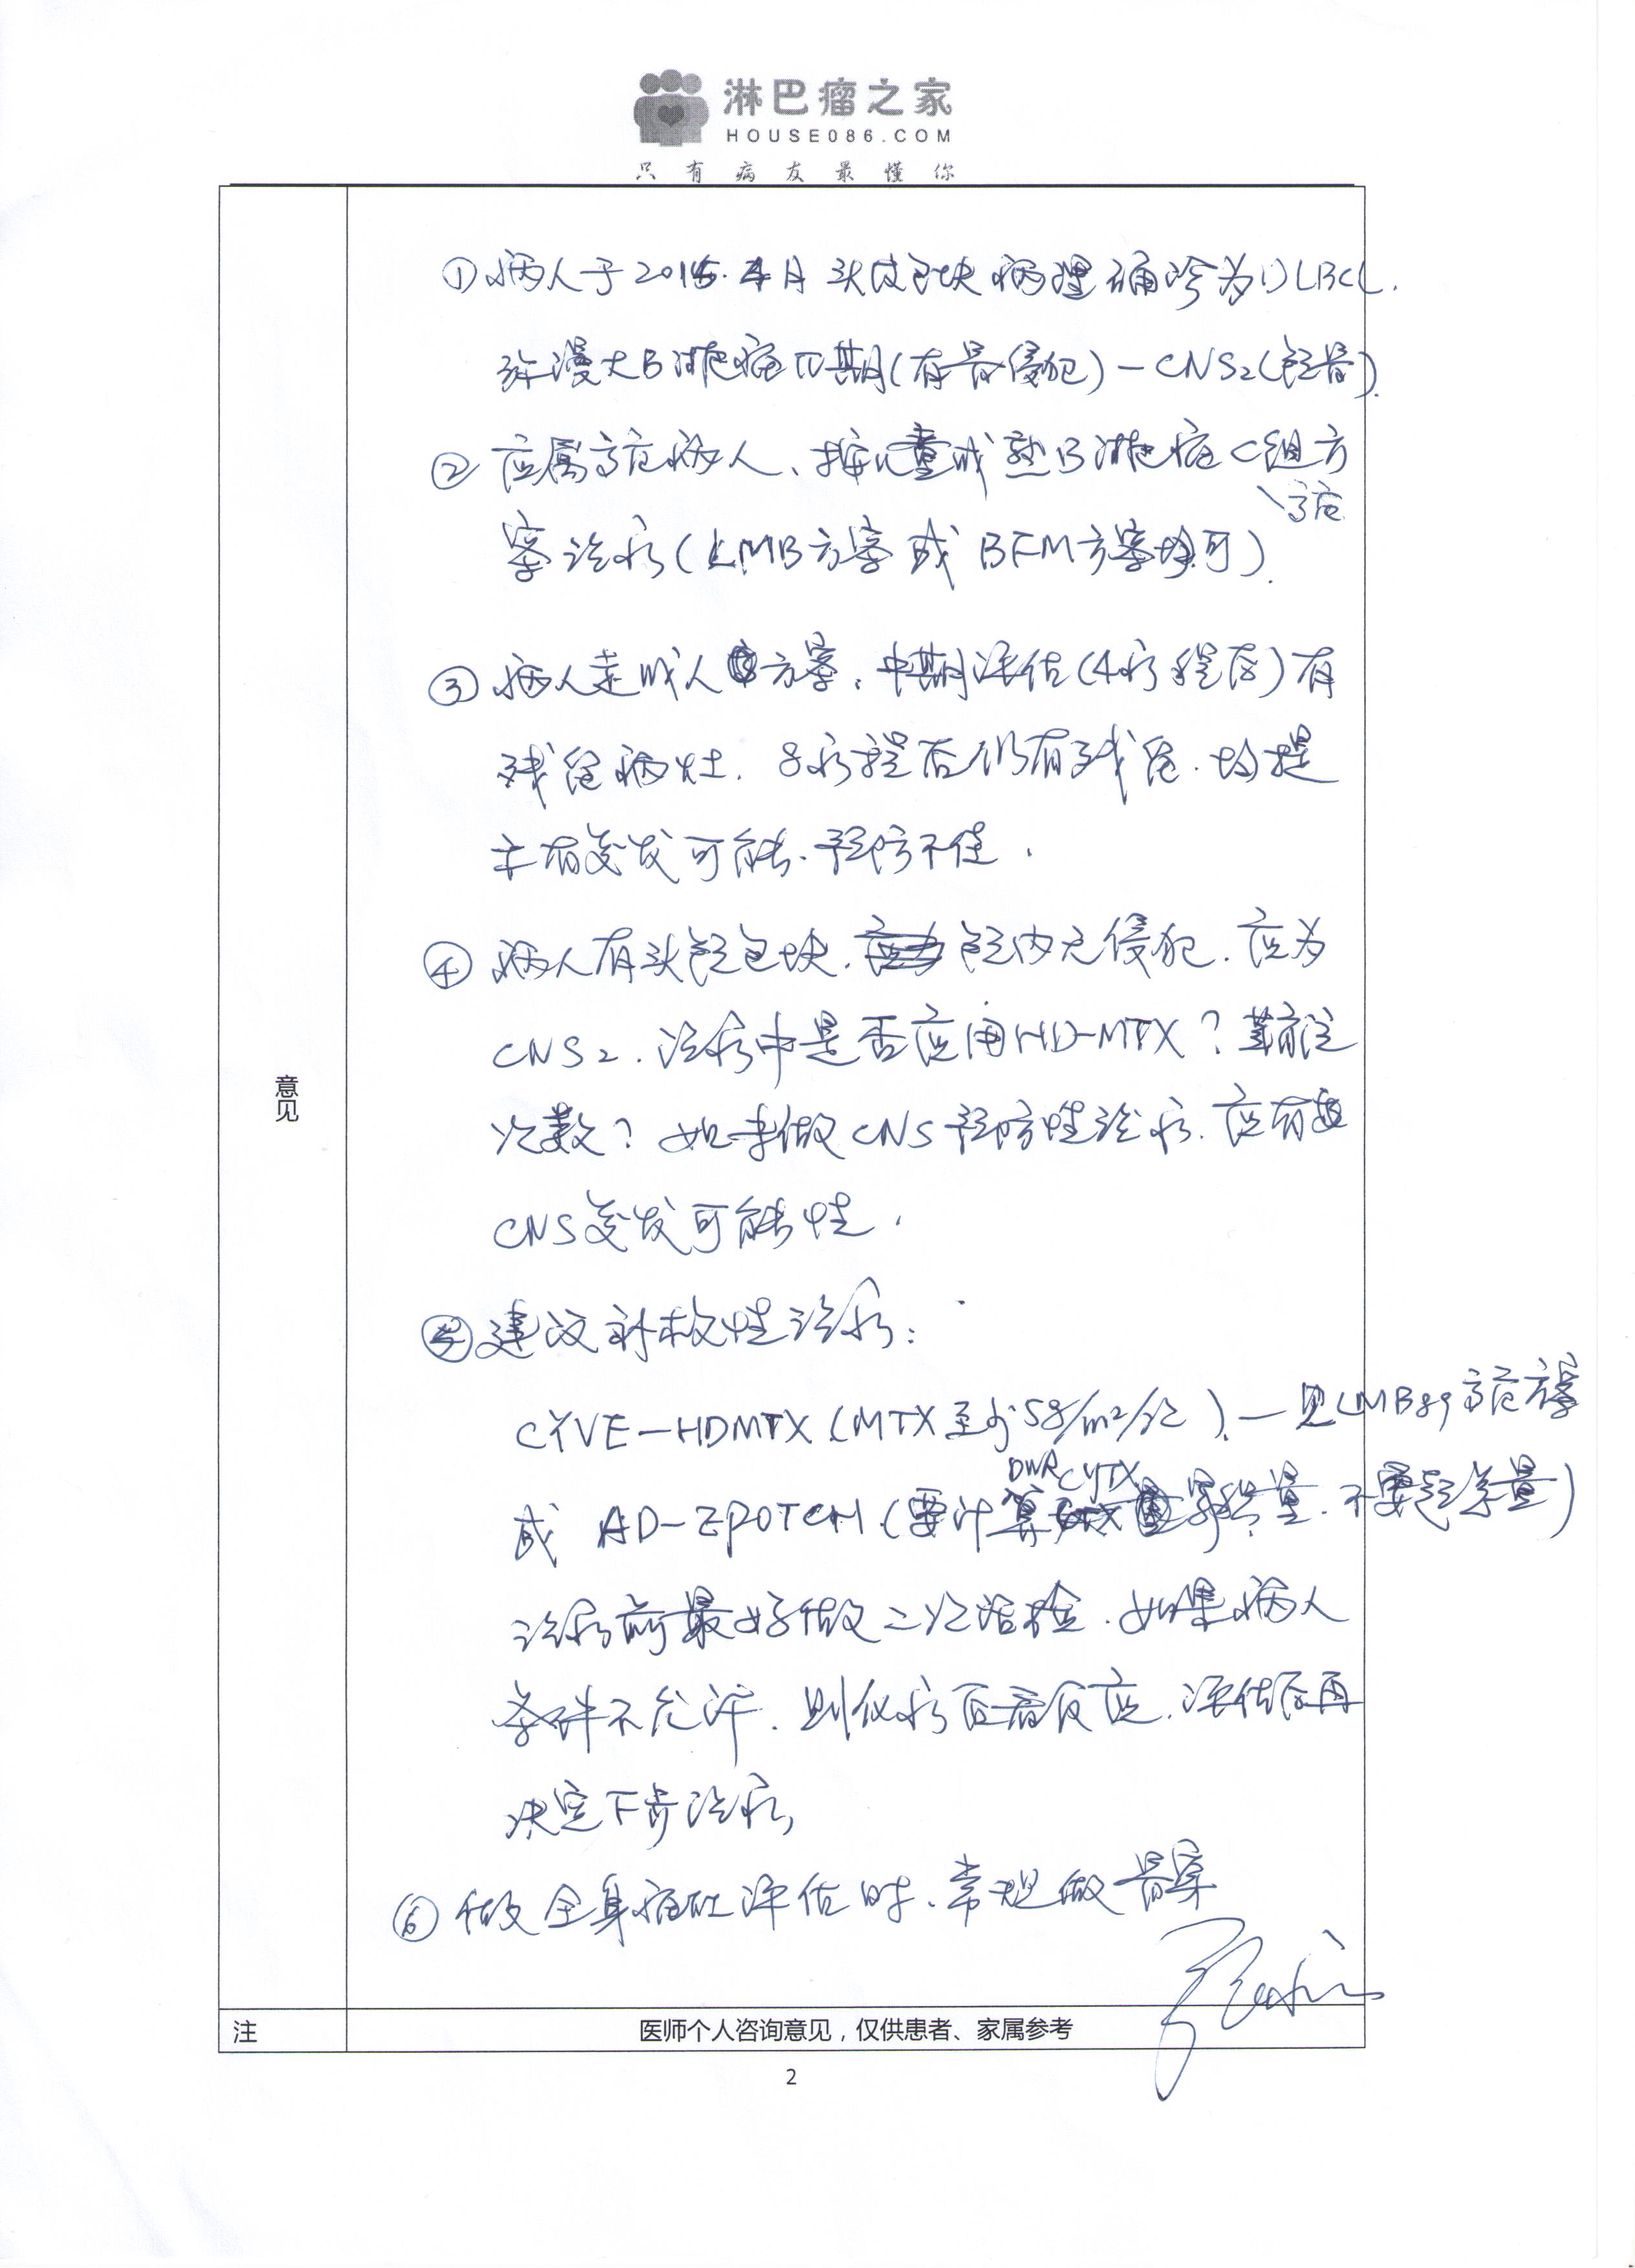 淋巴瘤之家
HOUSE086.COM
只有病友最懂你
意见
① 病人于2015.4月头皮包块病理确诊为DLBCL.
弥漫大B淋巴瘤IV期(有骨侵犯)-CNS2(颅骨).
② 应属高危病人、按儿童成熟B淋巴瘤C组方
高危
案治疗(LMB方案或BFM方案均可).
③ 病人走成人方案,中期评估(4疗程后)有
残留病灶.8疗程后仍有残留.均提
示有复发可能.预防不佳.
④ 病人有头颅包块.颅内无侵犯.应为
CNS2.治疗中是否应用HD-MTX?鞘注
次数?如未做CNS预防性治疗.应有
CNS复发可能性.
⑤ 建议补救性治疗:
CYVE-HDMTX(MTX至少5g/m2/次).—见LMB89高危方案
DNR CYTX
或 AD-EPOTCH.(要计算累积量.不要超总量)
治疗前最好做二次活检.如果病人
条件不允许.则化疗后看反应.评估后再
决定下步治疗,
⑥ 做全身瘤灶评估时、常规做骨穿
注
医师个人咨询意见,仅供患者、家属参考
2